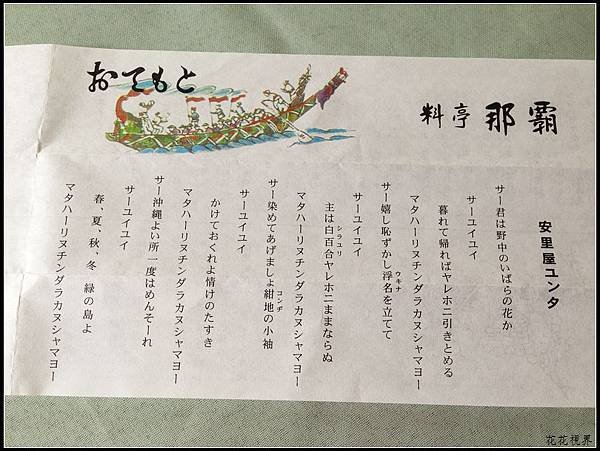 おてもと
料亭 那覇
安里屋ユンタ
サー君は野中のいばらの花か
サーユイユイ
暮れて帰ればヤレホニ引きとめる
マタハーリヌチンダラカヌシャマヨー
サー嬉し恥ずかし浮名を立てて
ウキナ
サーユイユイ
主は白百合ヤレホニままならぬ
シラユリ
マタハーリヌチンダラカヌシャマヨー
サー染めてあげましょ紺地の小袖
コンヂ
サーユイユイ
かけておくれよ情けのたすき
マタハーリヌチンダラカヌシャマヨー
サー沖縄よい所一度はめんそーれ
サーユイユイ
春、夏、秋、冬 緑の島よ
マタハーリヌチンダラカヌシャマヨー
花花視界